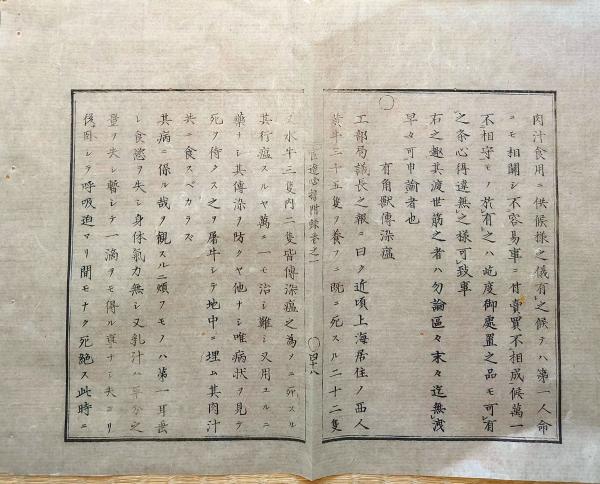 肉汁食用ニ供候様之儀有之候テハ第一人命
ニモ相関シ不容易事ニ付賣買不相成候萬一
不相守モノ於有之ハ屹度御處置之品モ可有
之条心得違無之様可致事
右之趣其渡世筋之者ハ勿論區々末々迄無洩
早々可申諭者也
○
有角獣傳染瘟
工部局議長之報ニ曰ク近頃上海居住ノ西人
黄牛三十五隻ヲ養フニ既ニ死スル二十二隻
附録巻之一
○四十八
水牛三隻内二隻皆傳染瘟之為メニ死スル
其行瘟スルヤ萬ニ一モ治シ難シ又用ユルニ
藥ナシ其傳染ヲ防クヤ他ナシ唯病状ヲ見テ
死ヲ待タス之ヲ屠牛シテ地中ニ埋ム其肉汁
共ニ食スベカラズ
其病ニ係ル哉ヲ観スルニ頗フモノハ第一耳垂
レ食慾ヲ失シ身体氣力無シ又乳汁ハ平分之
量ヲ失シ暫シテ一滴ヲモ得ル事ナシ夫ヨリ
シテ呼吸迫マリ間モナク死絶ス此時ニ